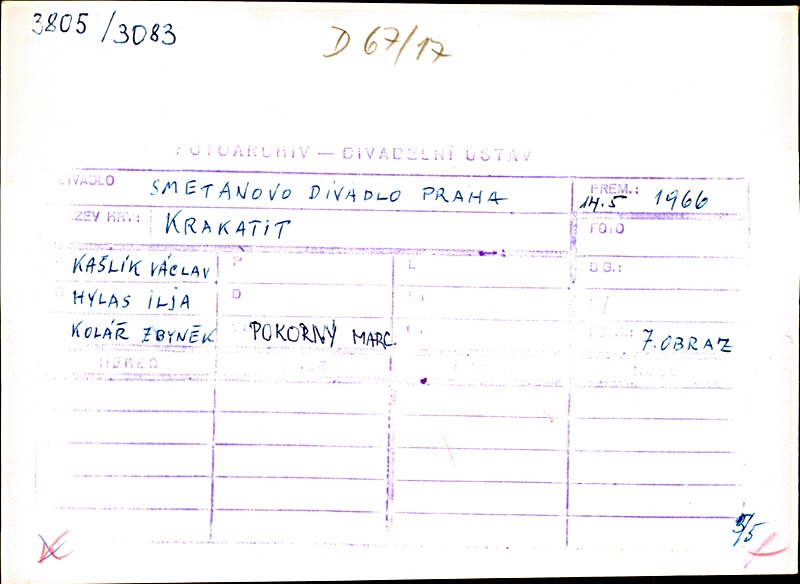 3805/3083
D 67/17
FOTOARCHIV — DIVADELNÍ ÚSTAV
DIVADLO SMETANOVO DIVADLO PRAHA PREM.: 14.5 1966
ZEV HRY: KRAKATIT FOTO
KAŠLÍK VÁCLAV P L SG.:
HYLAS ILJA D
KOLÁŘ ZBYNĚK POKORNÝ MARC. 7. OBRAZ
HEREC
5/5